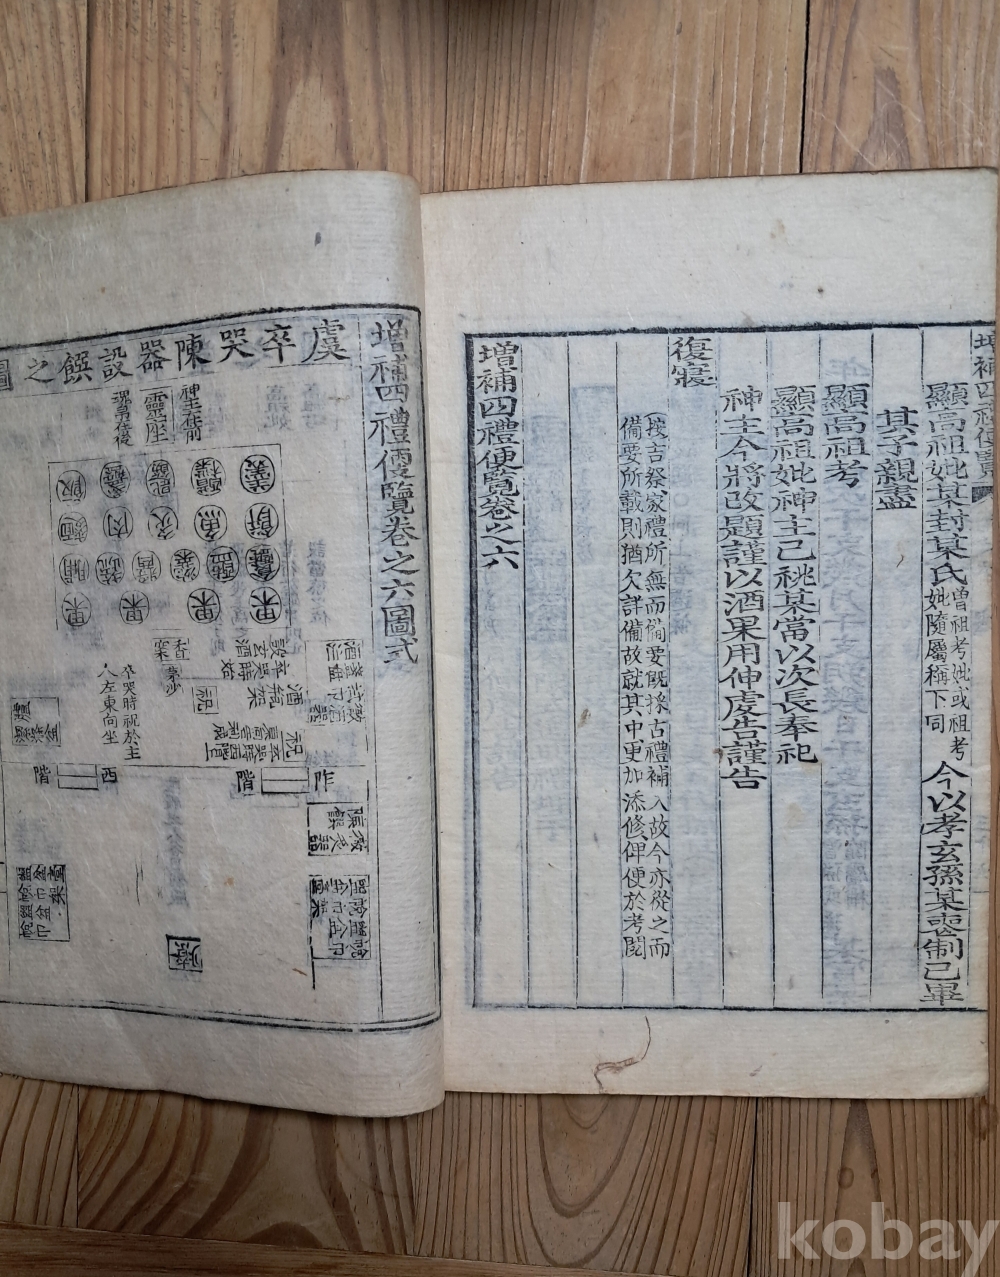 顯高祖妣某封某氏曾祖考妣或祖考妣隨屬稱下同今以孝玄孫某喪制已畢
其子親盡
顯高祖考
顯高祖妣神主已祧某當以次長奉祀
神主今將改題謹以酒果用伸虔告謹告
復寢
按吉祭家禮所無而備要旣採古禮補入故今亦從之而
備要所載則猶欠詳備故就其中更加添修俾便於考閱
增補四禮便覽卷之六
增補四禮便覽卷之六圖式
虞卒哭陳器設饌之圖
靈座
飯 匙 醋 羹
麵 肉 炙 魚 餠
醢
果 果 果 果
祝
卒哭時祝於主
人左東向坐
西 階
阼 階
kobay